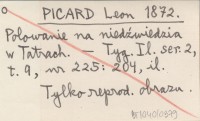 PICARD Leon 1872.
Polowanie na niedźwiedzia
w Tatrach. — Tyg. Il. ser. 2,
t. 9, nr 225: 204, il.
Tylko reprod. obrazu.